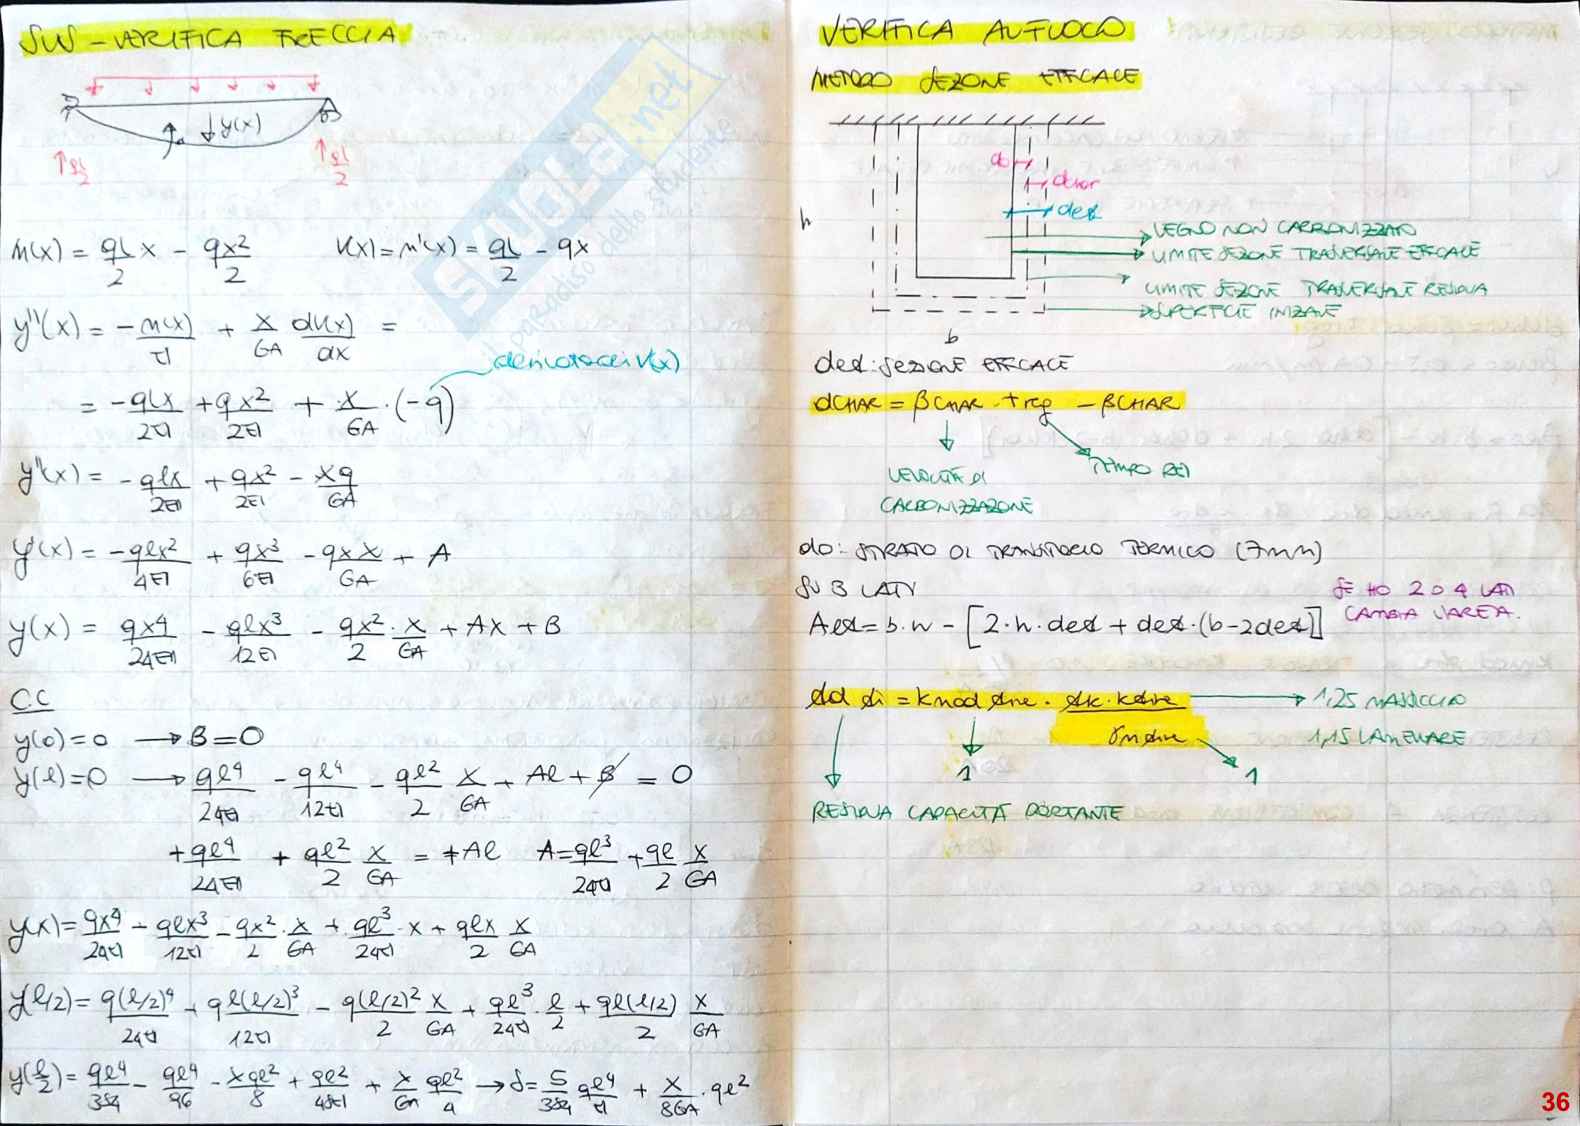 SLU - VERIFICA FRECCIA
y(x)
ql/2
ql/2
M(x) = ql/2 x - qx²/2    V(x) = M'(x) = ql/2 - qx
y''(x) = -M(x)/EI + χ/GA dV(x)/dx =
derivata di V(x)
= -qlx/2EI + qx²/2EI + χ/GA · (-q)
y''(x) = -qlx/2EI + qx²/2EI - χq/GA
y'(x) = -qlx²/4EI + qx³/6EI - qxχ/GA + A
y(x) = qx4/24EI - qlx³/12EI - qx²/2 · χ/GA + Ax + B
C.C
y(0)=0 → B=0
y(l)=0 → ql4/24EI - ql4/12EI - ql²/2 χ/GA + Al + B = 0
+ql4/24EI + ql²/2 χ/GA = +Al    A = ql³/24EI + ql/2 χ/GA
y(x) = qx4/24EI - qlx³/12EI - qx²/2 · χ/GA + ql³/24EI · x + qlx/2 χ/GA
y(l/2) = q(l/2)4/24EI - ql(l/2)³/12EI - q(l/2)²/2 χ/GA + ql³/24EI · l/2 + ql(l/2)/2 χ/GA
y(l/2) = ql4/384 - ql4/96 - χql²/8 + ql²/48EI + χ/GA ql²/4 → δ = 5/384 ql4/EI + χ/8GA · ql²
VERIFICA AL FUOCO
METODO SEZIONE EFFICACE
d0
dchar
def
h
LEGNO NON CARBONIZZATO
LIMITE SEZIONE TRASVERSALE EFFICACE
LIMITE SEZIONE TRASVERSALE RESIDUA
SUPERFICIE INIZIALE
b
def: SEZIONE EFFICACE
dCHAR = βCHAR · treq - βCHAR
VELOCITÀ DI
CARBONIZZAZIONE
TEMPO REI
d0: STRATO DI TRANSITORIO TERMICO (7mm)
SU 3 LATI
SE HO 2 O 4 LATI
CAMBIA L'AREA.
Aef = b·h - [2·h·def + def·(b-2def)]
fd fi = kmod fire · fk·kfire/γm fire
1,25 MASSICCIO
1,15 LAMELLARE
1
1
RESIDUA CAPACITÀ PORTANTE
SKUOLA.net
il paradiso dello studente
36